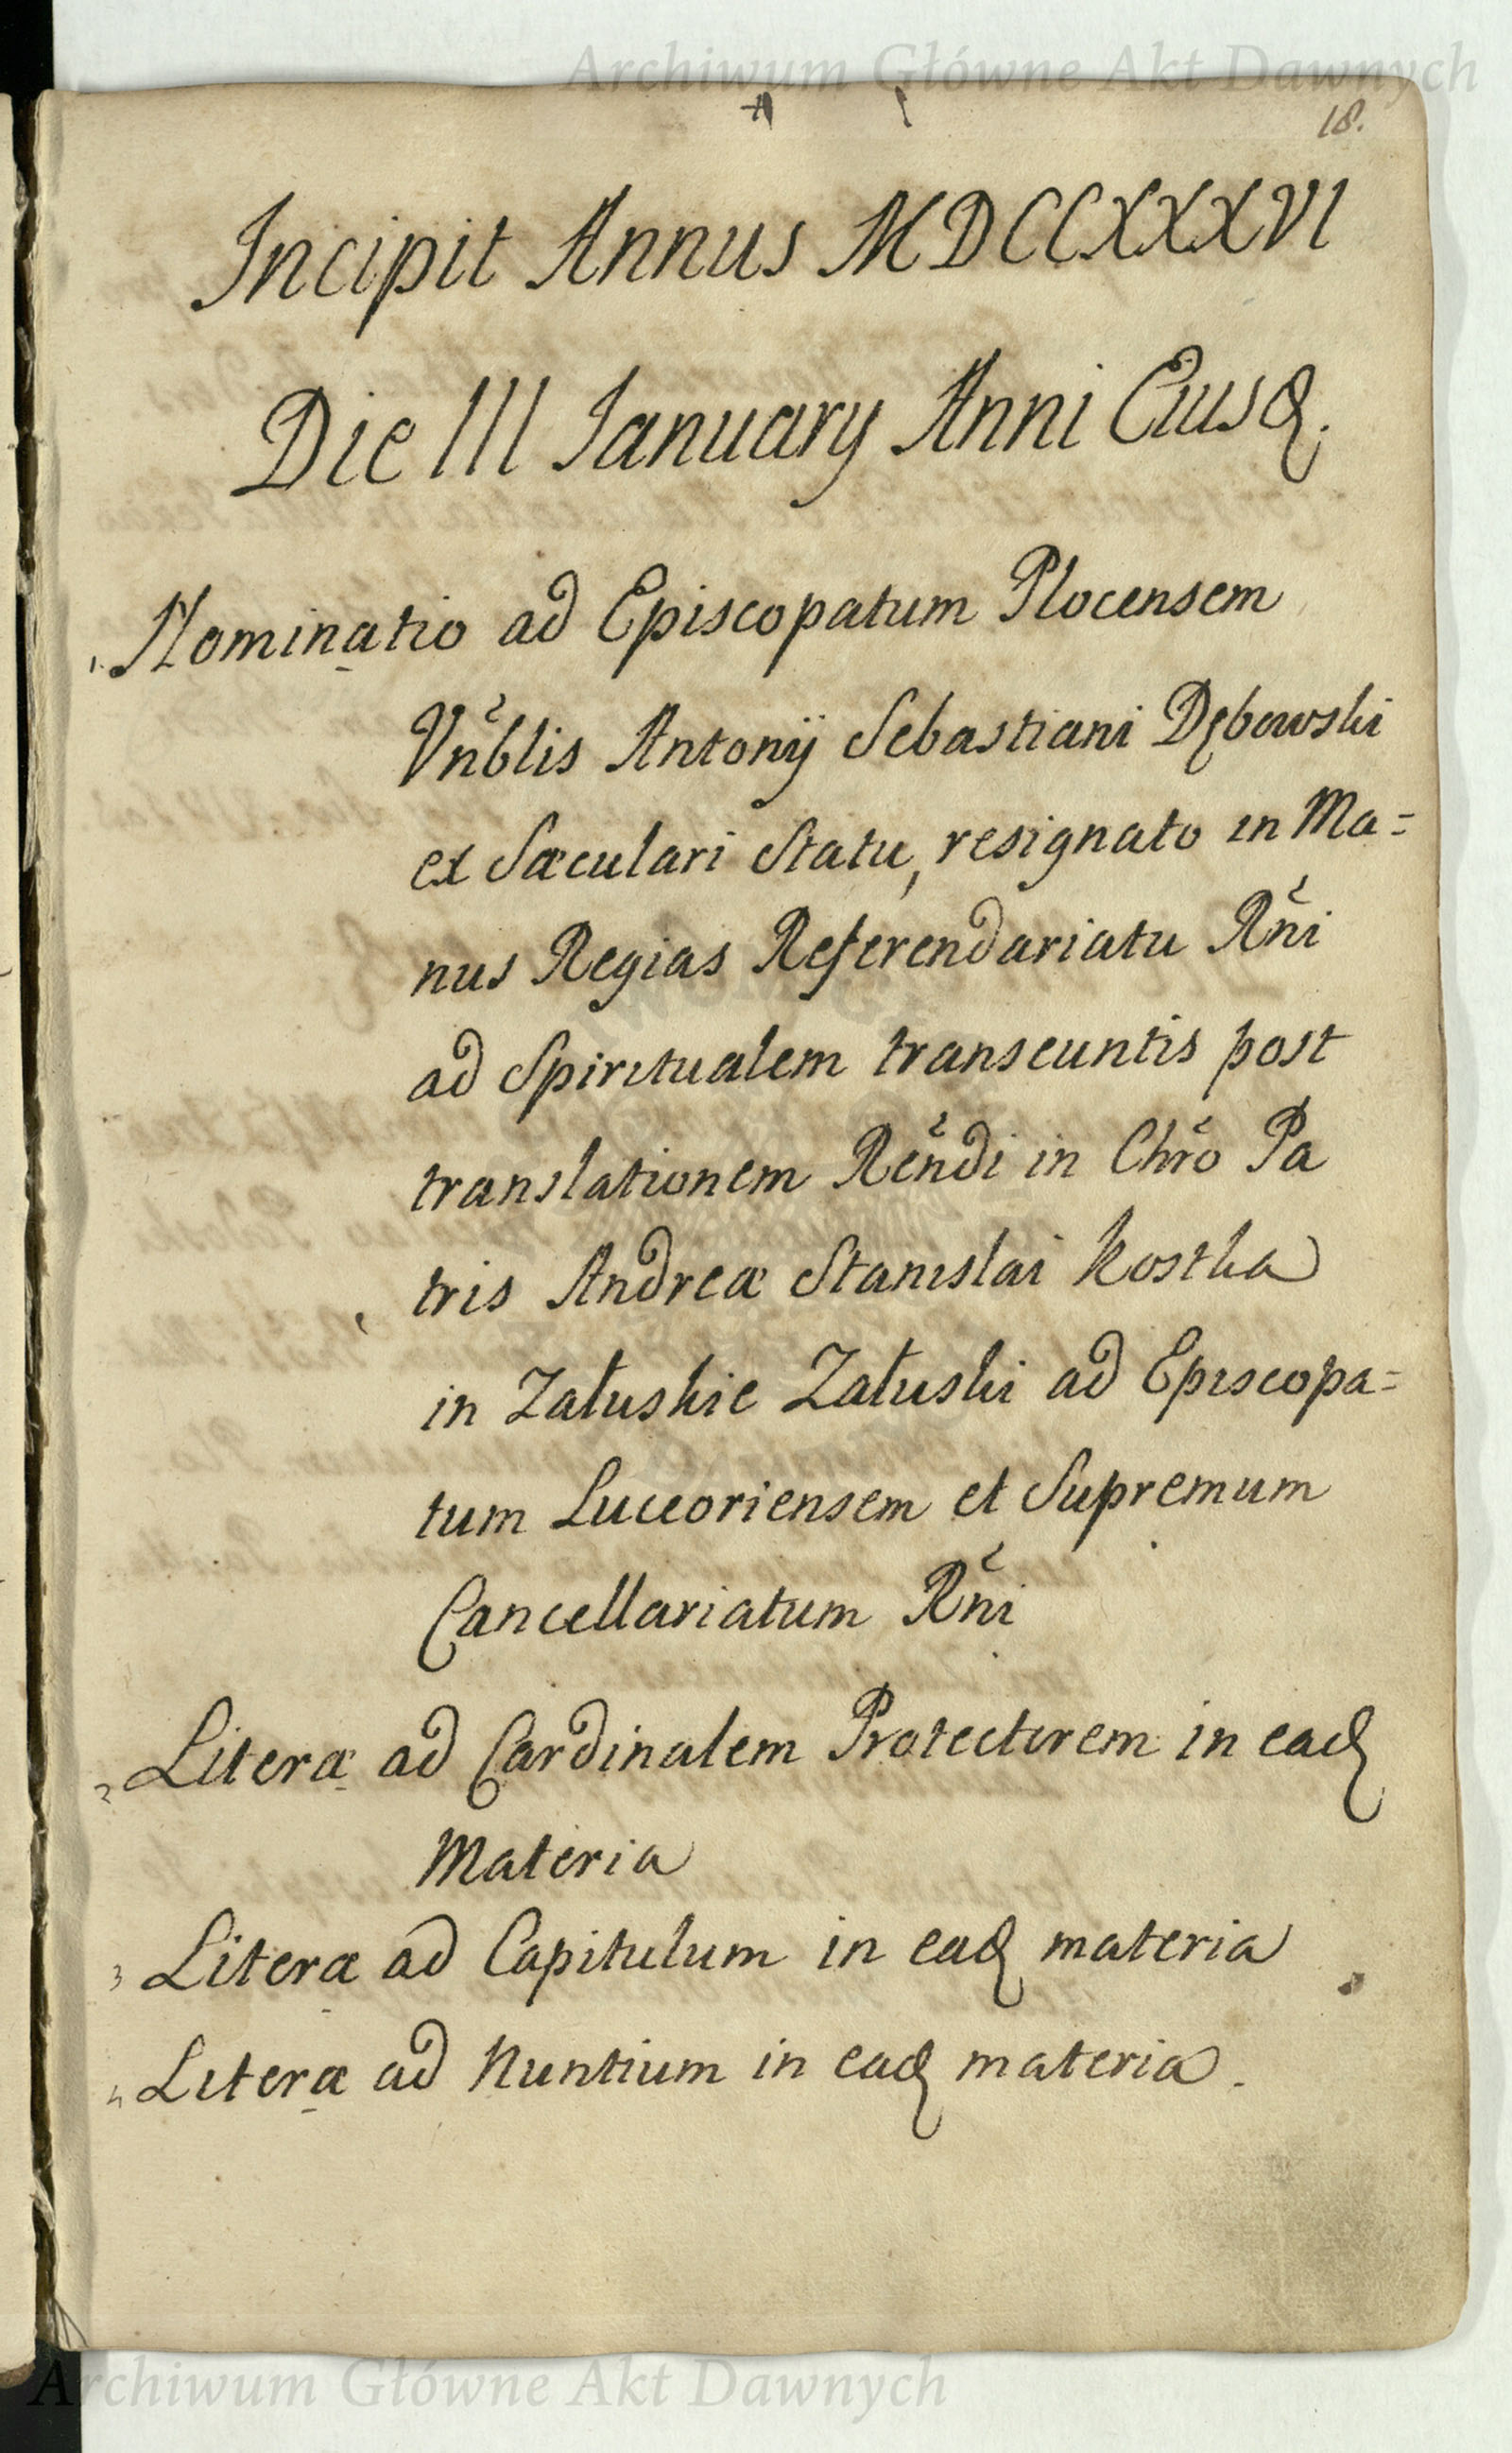 Archiwum Główne Akt Dawnych
18.
Incipit Annus MDCCXXXVI
Die III January Anni Eiusq.
1. Nominatio ad Episcopatum Plocensem
Vnblis Antonij Sebastiani Dębowski
ex Sæculari Statu, resignato in Ma=
nus Regias Referendariatu Rñi
ad Spiritualem transeuntis post
translationem Reñdi in Chrõ Pa
tris Andreæ Stanislai Kostka
in Załuskie Załuski ad Episcopa=
tum Luceoriensem et Supremum
Cancellariatum Rñi
2 Literæ ad Cardinalem Protectorem in eadq
Materia
3 Literæ ad Capitulum in eadq materia
4 Literæ ad Nuntium in eadq materia.
Archiwum Główne Akt Dawnych